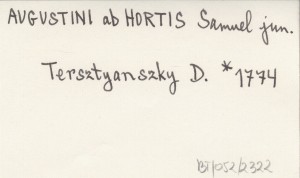 AUGUSTINI ab HORTIS Samuel jun.
Tersztyanszky D. *1774
B7/052/2322